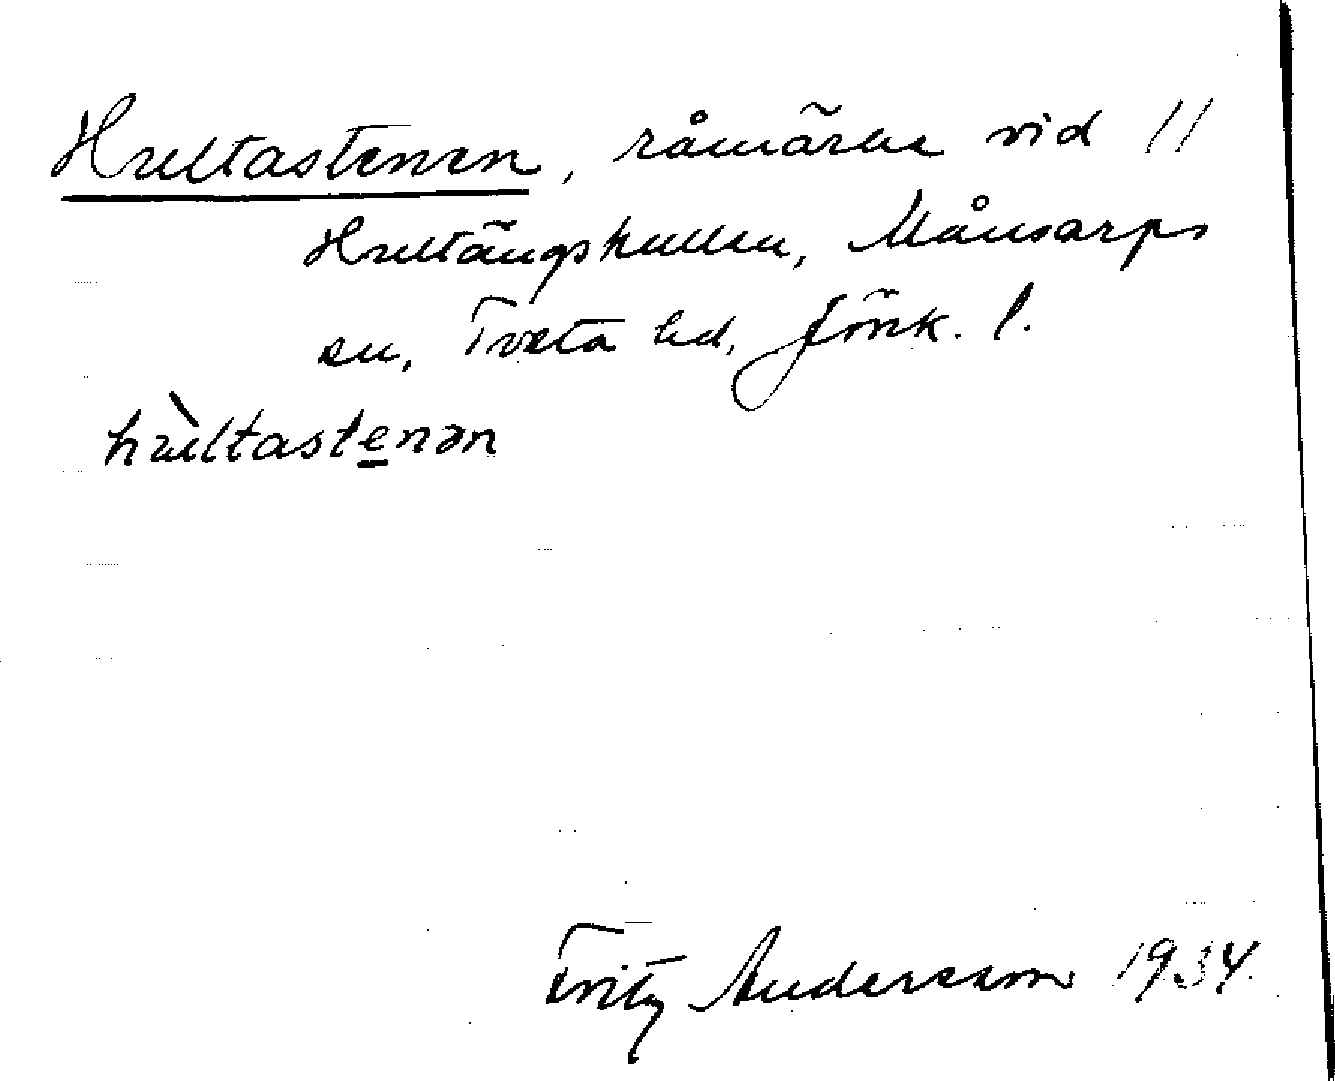 Hultastenen, råmärke vid 11
Hultängskullen, Månsarps
sn, Tveta hd, Jönk. l.
hùltastenən
Fritz Andersson 1934.